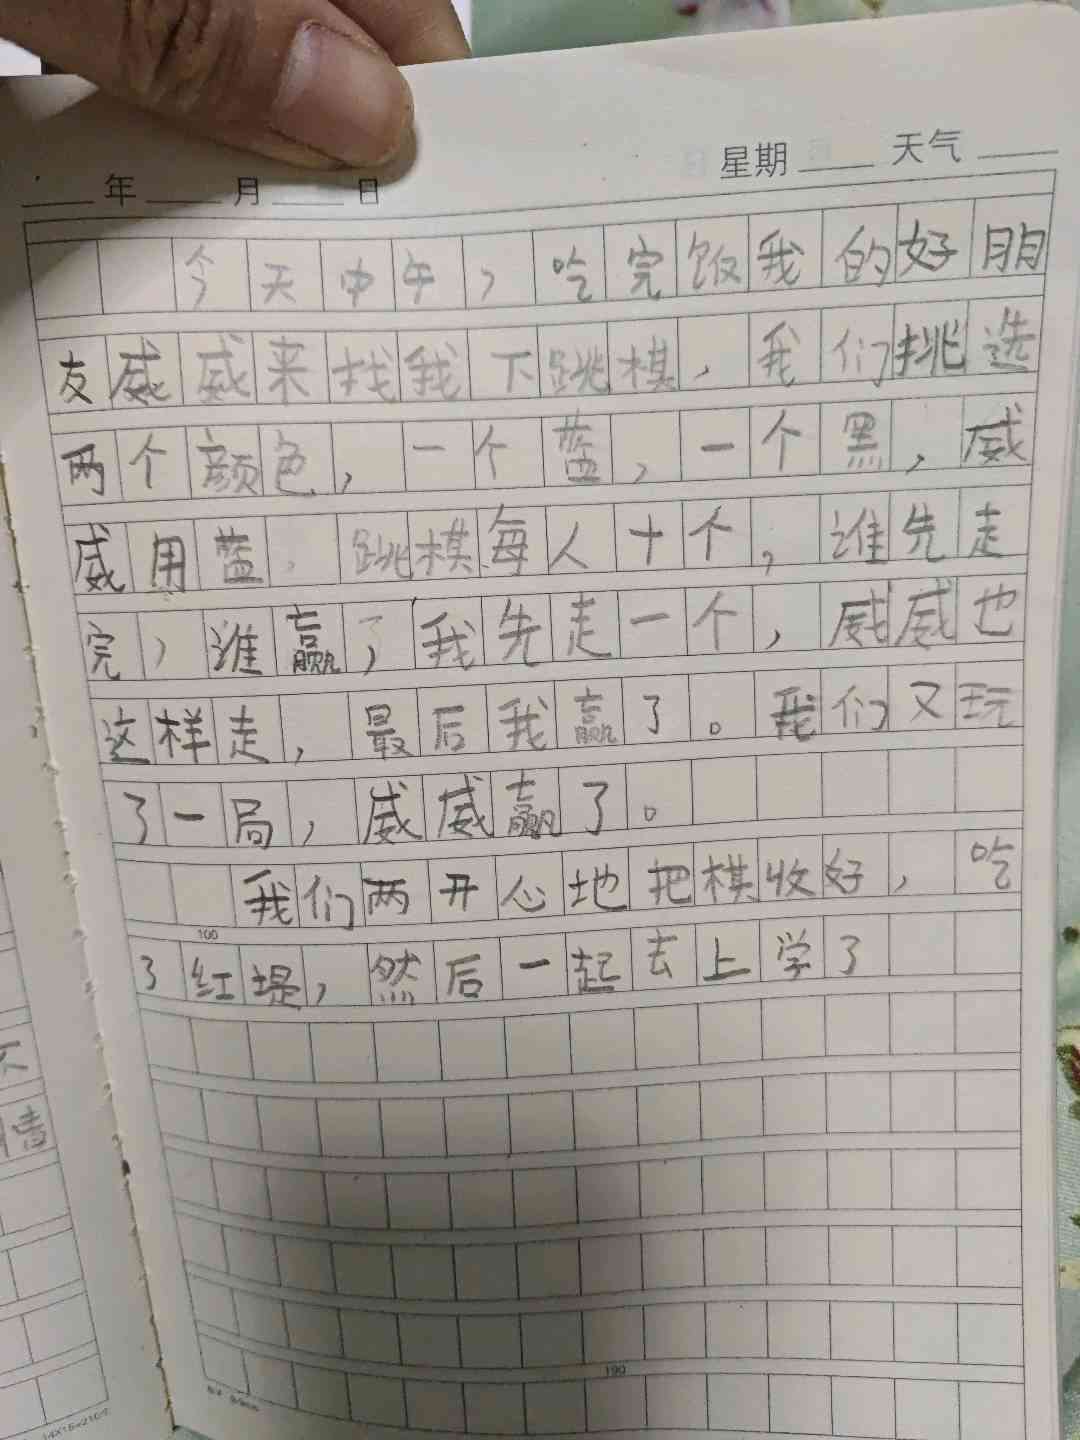 年 月 日 星期 天气
今天中午，吃完饭我的好朋
友威威来找我下跳棋，我们挑选
两个颜色，一个蓝，一个黑，威
威用蓝，跳棋每人十个，谁先走
完，谁赢了，我先走一个，威威也
这样走，最后我赢了。我们又玩
了一局，威威赢了。
我们两开心地把棋收好，吃
100
了红堤，然后一起去上学了
190
不
情